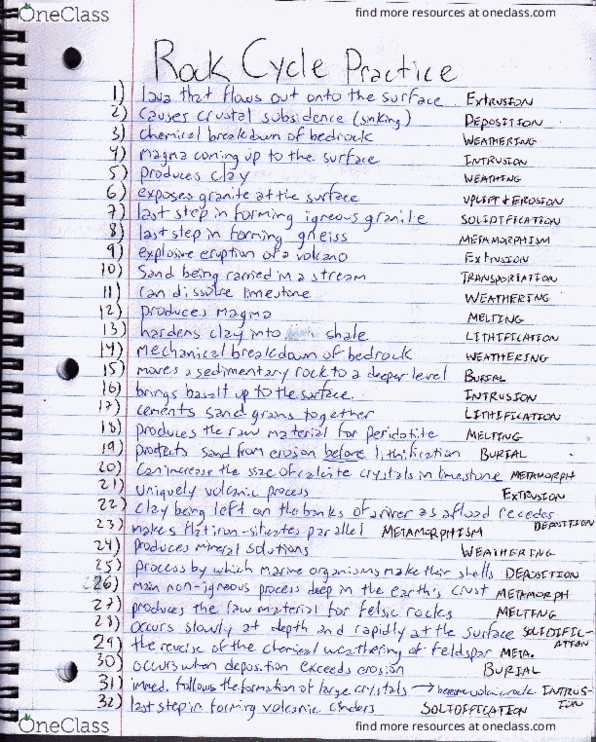 OneClass
find more resources at oneclass.com
Rock Cycle Practice
1) lava that flows out onto the surface EXTRUSION
2) Causes crustal subsidence (sinking) DEPOSITION
3) chemical breakdown of bedrock WEATHERING
4) magma coming up to the surface INTRUSION
5) produces clay WEATHING
6) exposes granite at the surface UPLIFT + EROSION
7) last step in forming igneous granite SOLIDIFICATION
8) last step in forming gneiss METAMORPHISM
9) explosive eruption of a volcano EXTRUSION
10) Sand being carried in a stream TRANSPORTATION
11) can dissolve limestone WEATHERING
12) produces magma MELTING
13) hardens clay into shale LITHIFICATION
14) mechanical breakdown of bedrock WEATHERING
15) moves a sedimentary rock to a deeper level BURIAL
16) brings basalt up to the surface INTRUSION
17) cements sand grains together LITHIFICATION
18) produces the raw material for peridotite MELTING
19) protects sand from erosion before lithification BURIAL
20) Can increase the size of calcite crystals in limestone METAMORPH
21) Uniquely volcanic process EXTRUSION
22) clay being left on the banks of a river as a flood recedes DEPOSITION
23) makes flat iron-silicates parallel METAMORPHISM
24) produces mineral solutions WEATHERING
25) process by which marine organisms make their shells DEPOSITION
26) main non-igneous process deep in the earth's crust METAMORPH
27) produces the raw material for felsic rocks MELTING
28) occurs slowly at depth and rapidly at the surface SOLIDIFIC-
ATION
29) the reverse of the chemical weathering of feldspar META.
30) occurs when deposition exceeds erosion BURIAL
31) immed. follows the formation of large crystals → volcanic rock INTRUS-
ION
32) last step in forming volcanic cinders SOLIDIFICATION
OneClass
find more resources at oneclass.com